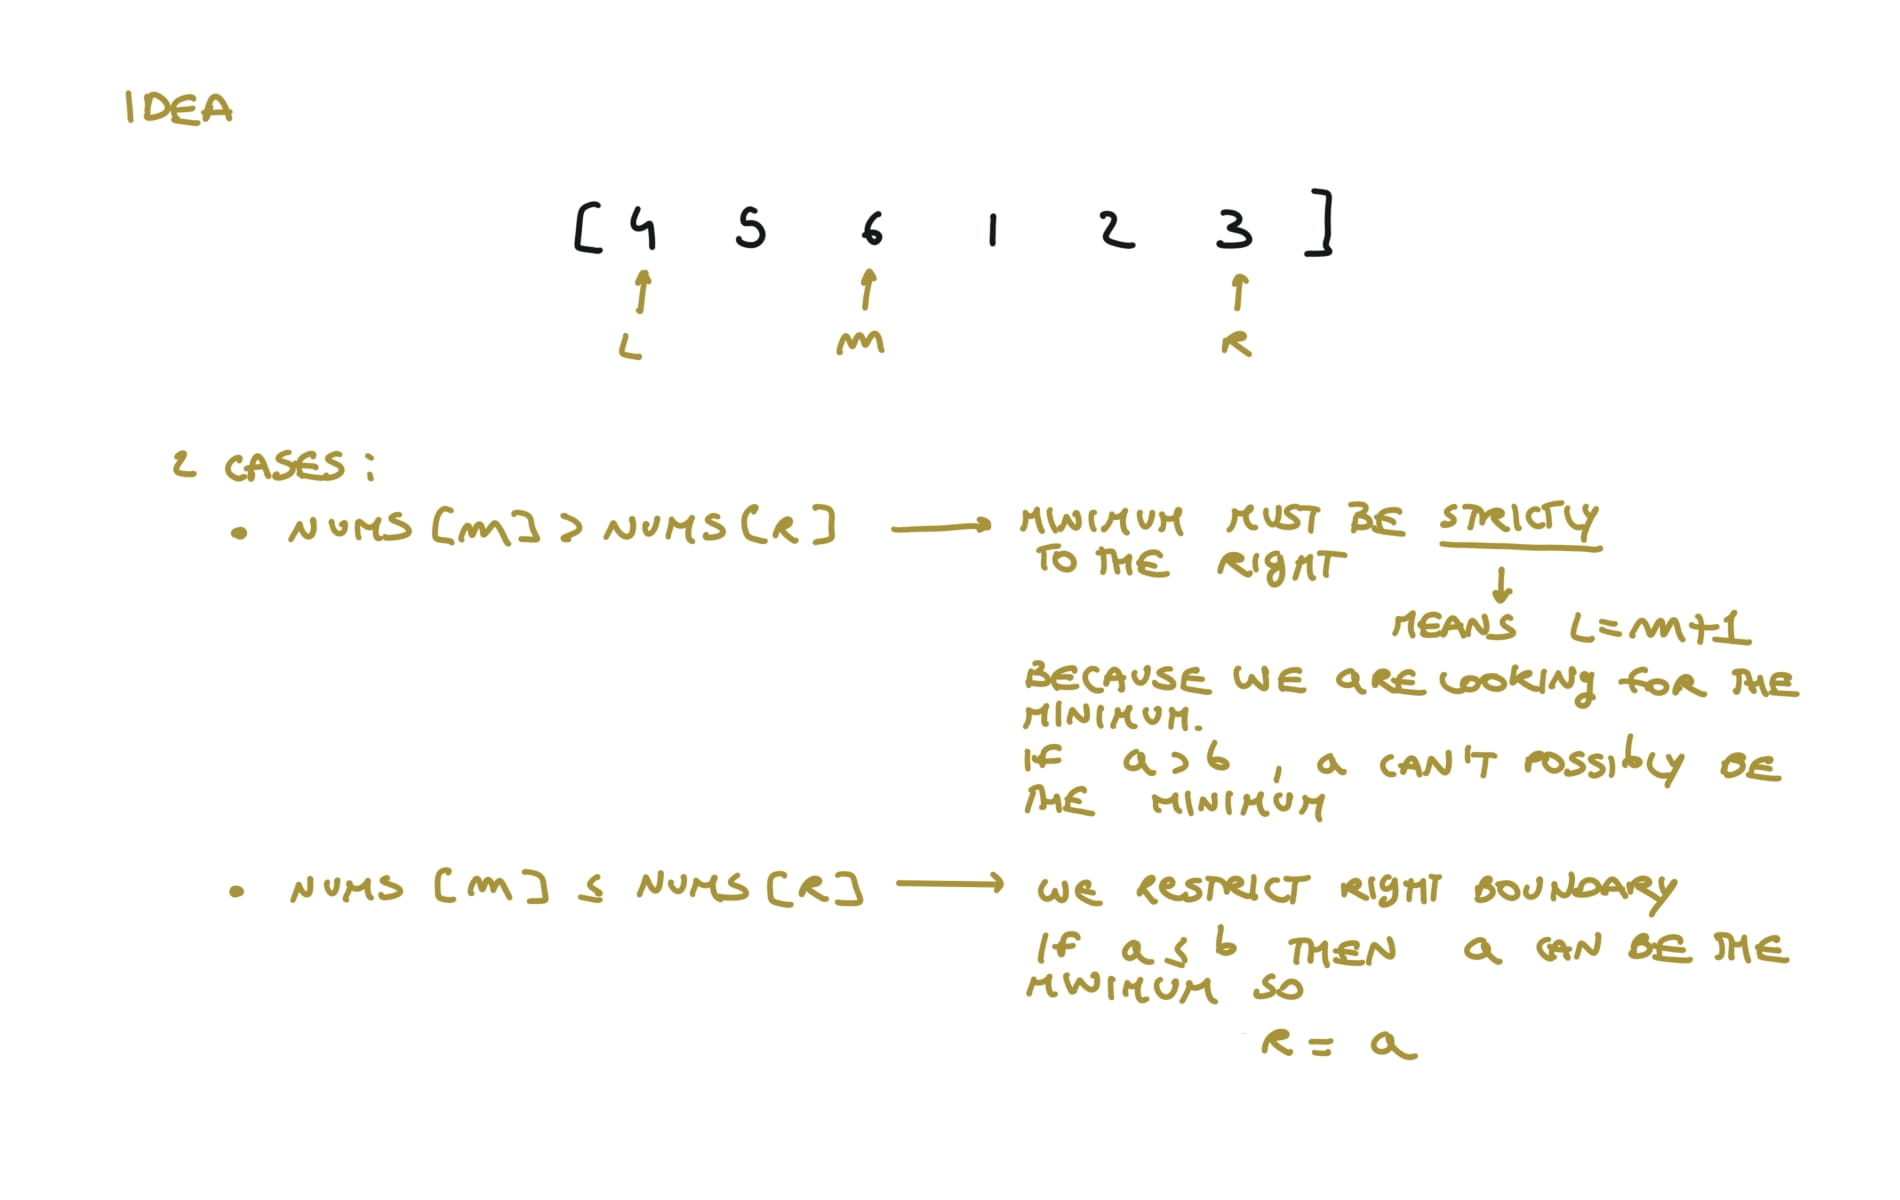 IDEA
[ 4 5 6 1 2 3 ]
L m R
2 CASES:
• NUMS [m] > NUMS [R] → MINIMUM MUST BE STRICTLY
TO THE RIGHT
MEANS L=m+1
BECAUSE WE ARE LOOKING FOR THE
MINIMUM.
IF a > b , a CAN'T POSSIBLY BE
THE MINIMUM
• NUMS [m] ≤ NUMS [R] → WE RESTRICT RIGHT BOUNDARY
IF a ≤ b THEN a CAN BE THE
MINIMUM SO
R = a